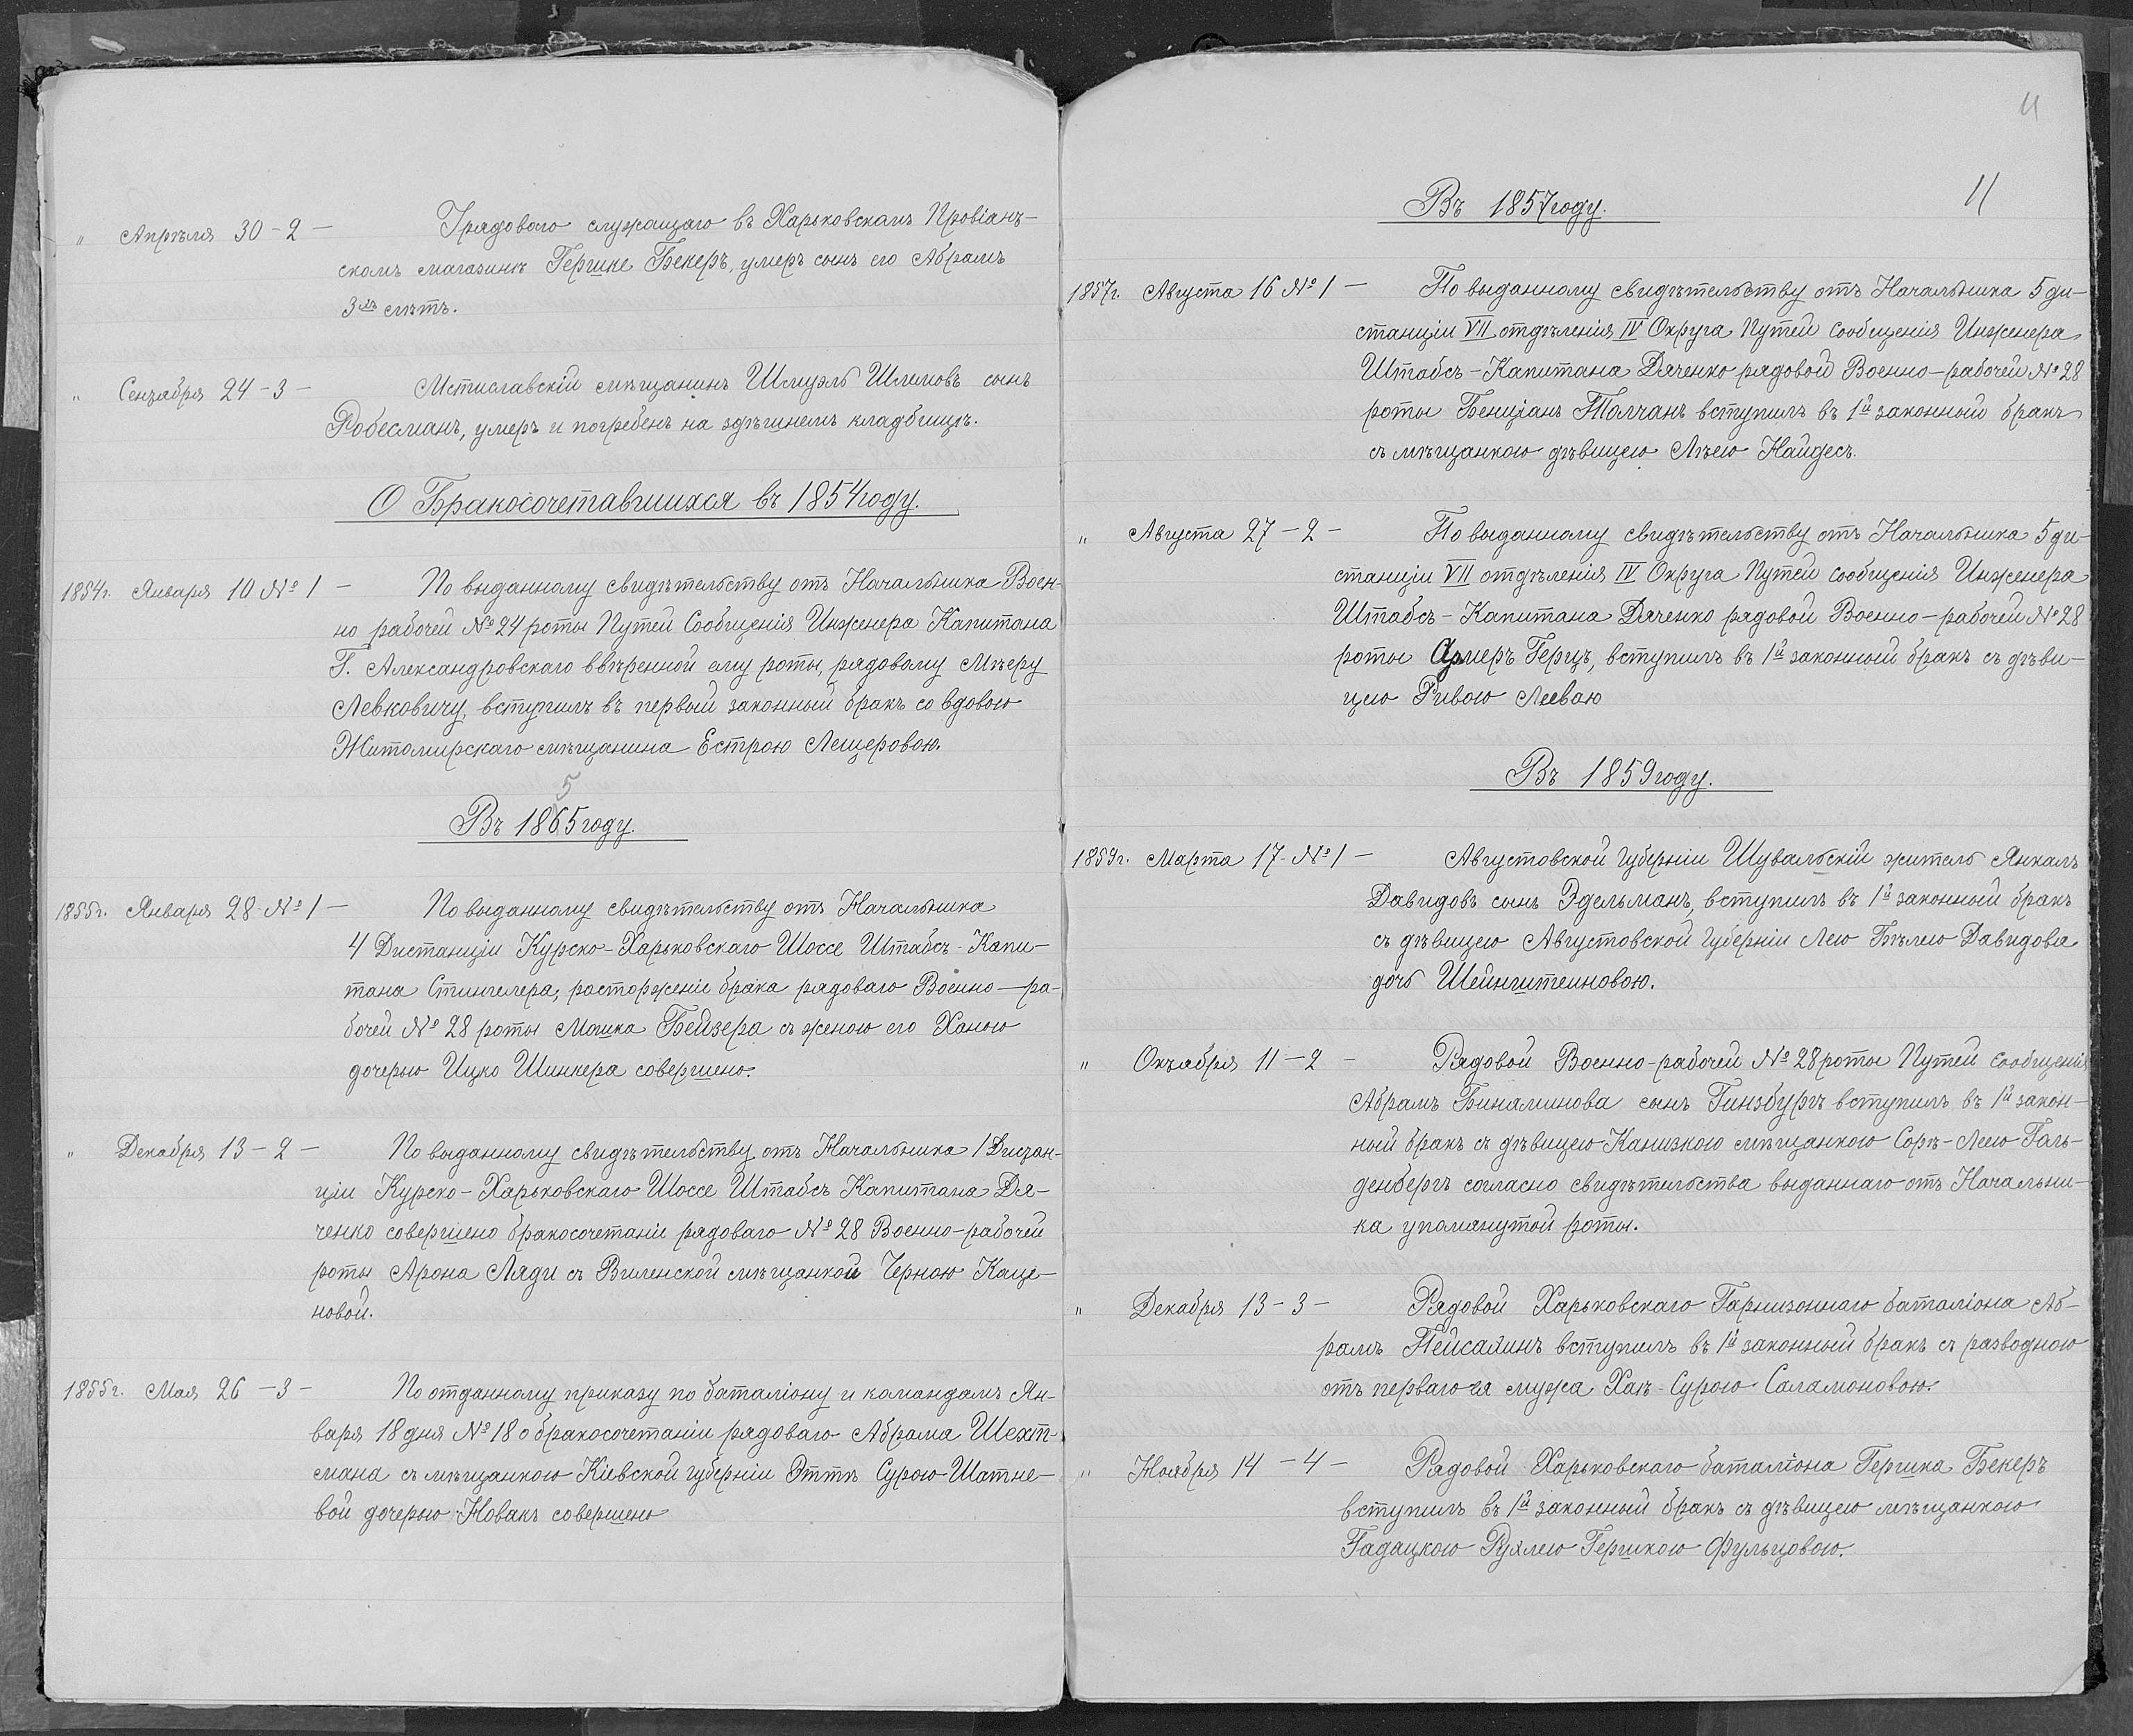 " Апрѣля 30 - 2 - У рядоваго служащаго въ Харьковскамъ Провіан-
скомъ магазинѣ Гершке Бекеръ, умеръ сынъ его Абрамъ
3хъ лѣтъ.
" Сентября 24 - 3 - Мстиславскій мѣщанинъ Шмуэль Шлемовъ сынъ
Фобесманъ, умеръ и погребенъ на здѣшнемъ кладбищѣ.
О Бракосочетавшихся въ 1854 году.
1854г. Января 10 № 1 - По выданному свидѣтельству отъ Начальника Воен-
но рабочей № 24 роты Путей Сообщенія Инженера Капитана
Г. Александровскаго ввѣренной ему роты, рядовому Мѣеру
Левковичу, вступилъ въ первый законный бракъ со вдовою
Житомирскаго мѣщанина Естрою Лещеровою.
5
Въ 1865 году.
1855г. Января 28 № 1 - По выданному свидѣтельству отъ Начальника
4 Дистанціи Курско-Харьковскаго Шоссе Штабсъ-Капи-
тана Стингелера, расторженіе брака рядоваго Военно-ра-
бочей № 28 роты Мошка Бейзера съ женою его Ханою
дочерью Ицко Шинкера совершено.
" Декабря 13 - 2 - По выданному свидѣтельству отъ Начальника 1 Дистан-
ціи Курско-Харьковскаго Шоссе Штабсъ Капитана Дя-
ченко совершено бракосочетаніе рядоваго № 28 Военно-рабочей
роты Арона Ляди съ Виленской мѣщанкой Черною Каце-
новой.
1855г. Мая 26 - 3 - По отданному приказу по баталіону и командамъ Ян-
варя 18 дня № 18 о бракосочетаніи рядоваго Абрама Шехт-
мана съ мѣщанкою Кіевской губерніи Эттѣ Сурою Шатне-
вой дочерью Новакъ совершено
11
11
Въ 1857 году.
1857г. Августа 16 № 1 - По выданному свидѣтельству отъ Начальника 5 ди-
станціи VII отдѣленія IV Округа Путей Сообщенія Инженера
Штабсъ-Капитана Дяченко рядовой Военно-рабочей № 28
роты Бенціанъ Толчанъ вступилъ въ 1й законный бракъ
съ мѣщанкою дѣвицею Лѣею Найдесъ.
" Августа 27 - 2 - По выданному свидѣтельству отъ Начальника 5 ди-
станціи VII отдѣленія IV Округа Путей Сообщенія Инженера
Штабсъ-Капитана Дяченко рядовой Военно-рабочей № 28
роты Герцъ, вступилъ въ 1й законный бракъ съ дѣви-
цею Ривою Леваю
Въ 1859 году.
1859г. Марта 17 № 1 - Августовской Губерніи Шувальскій житель Янкалъ
Давидовъ сынъ Эдельманъ, вступилъ въ 1й законный бракъ
съ дѣвицею Августовской Губерніи Лею Бѣлею Давидова
дочь Шейнштеиновою.
" Октября 11 - 2 - Рядовой Военно-рабочей № 28 роты Путей Сообщенія
Абрамъ Биняминова сынъ Гинзбургъ вступилъ въ 1й закон-
ный бракъ съ дѣвицею Канизкою мѣщанкою Сорѣ-Лею Галь-
денбергъ согласно свидѣтельства выданнаго отъ Начальни-
ка упомянутой роты.
" Декабря 13 - 3 - Рядовой Харьковскаго Гарнизоннаго баталіона Аб-
рамъ Пейсахинъ вступилъ въ 1й законный бракъ съ разводною
отъ перваго ея мужа Хаѣ-Сурою Саламоновою.
" Ноября 14 - 4 - Рядовой Харьковскаго баталіона Гершка Бекеръ
вступилъ въ 1й законный бракъ съ дѣвицею мѣщанкою
Гадацкою Рухлею Гершкою Фульцовою.